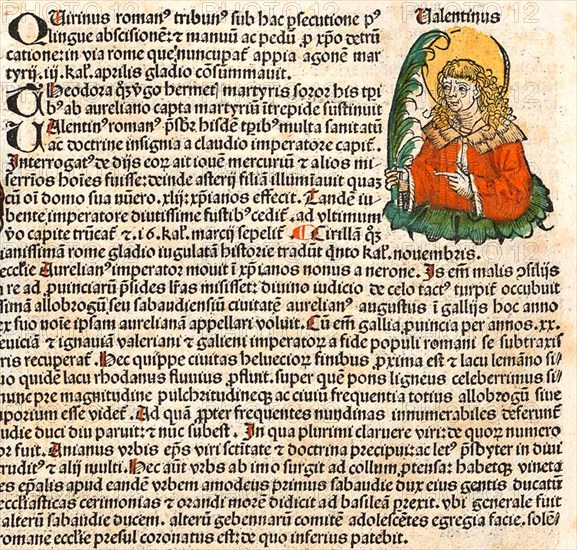 Quirinus roman⁹ tribun⁹ sub hac ꝑsecutione p⁹
lingue abscisionē: ⁊ manuū ac pedū ꝓ xp̄o detrū
catione: in via rome que nuncupat᷑ appia agonē mar
tyrij. iij. kal᷑. aprilis gladio cōsummauit.
Theodora martyris soror his
ab aureliano capta martyriū ītrepide sustinuit
Ualentin⁹ roman⁹ p̄sbr̄ hisdē tꝑib⁹ multa sanitatū
ac doctrine insignia a claudio imperatore capit᷑.
Interrogat⁹ de dijs eoꝝ ait iouē mercuriū ⁊ alios mi-
serrīos hoīes fuisse: deinde asterij filiā illumīauit quaꝫ
cū oī domo sua nūero. xlij: xp̄ianos effecit. Tandē iu-
bente īmperatore diutissime fustib⁹ cedit᷑. ad vltimum
vo capite trūcat᷑ ⁊. 16. kal᷑. marcij sepelit᷑ Cirillā
ianissimam rome gladio iugulatā historie tradūt q̄nto kal᷑. nouembris.
eccl̄ie Aurelian⁹ imperator mouit ī xp̄ianos nonus a nerone. Is em̄ malis ꝯsilijs
re ad ꝓuinciaꝝ p̄sides lr̄as misisset: diuino iudicio de celo tact⁹ turpit᷑ occubuit
simā allobrogū, seu sabaudiensiū ciuitatē aurelian⁹ augustus ī gallijs hoc anno
ex suo noīe ip̄sam aurelianā appellari voluit. Cū em̄ gallia ꝓuincia per annos. xx.
⁊ ignauiā valeriani ⁊ galieni imperatoꝝ a fide populi romani se subtraxis
ris recuperat᷑. Hec quippe ciuitas heluecioꝝ finibus ꝓxima est ⁊ lacu lemāno si-
uo quidē lacu rhodanus fluuius ꝓfluit. super quē pons ligneus celeberrimus si-
nunc pre magnitudine pulchritudineqꝫ ac ciuiū frequentia totius allobrogū siue
mporium esse videt᷑. Ad quā ꝓpter frequentes nundinas innumerabiles deferunt᷑
udie duci diu paruit: ⁊ nūc subest. In qua plurimi claruere viri: de quoꝝ numero
or fuit. Anianus vrbis ep̄s viri sctītate ⁊ doctrina precipui: ac let⁹ p̄sbyter in diui
rudit⁹ ⁊ alij multi. Hec aūt vrbs ab imo surgit ad collum ꝓtensa: habetqꝫ vineta
es ep̄alis apud eandē vrbem amodeus primus sabaudie dux eius gentis ducatū
eccl̄iasticas cerimonias ⁊ orandi morē didicit ad basileā prexit. vbi generale fuit
alterū sabaudie ducem. alterū gebennarū comitē adolescētes egregia facie. solē-
romane eccl̄ie presul coronatus est: de quo inferius patebit.
Ualentinus